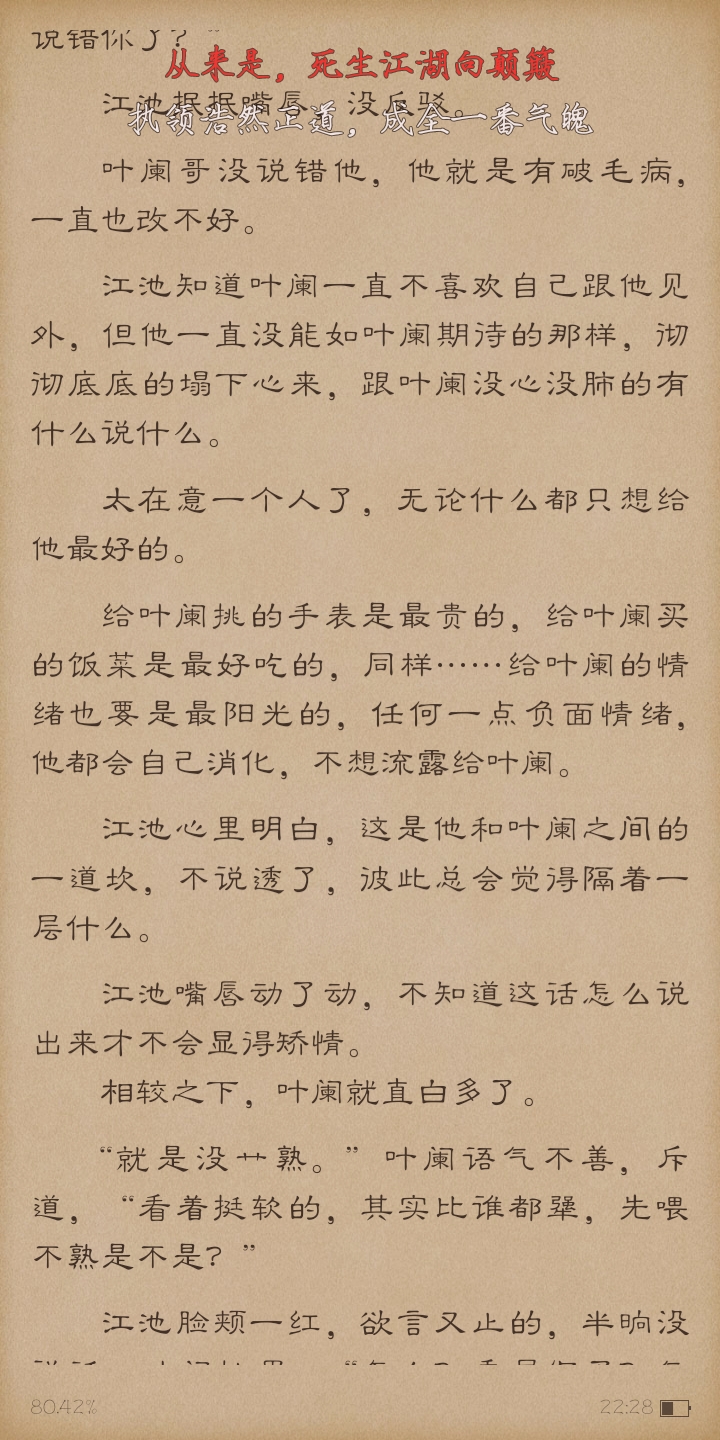 说错你了？”
从来是，死生江湖向颠簸
江池抿抿嘴唇，没反驳。
执领浩然正道，成全一番气魄
叶阑哥没说错他，他就是有破毛病，
一直也改不好。
江池知道叶阑一直不喜欢自己跟他见
外，但他一直没能如叶阑期待的那样，彻
彻底底的塌下心来，跟叶阑没心没肺的有
什么说什么。
太在意一个人了，无论什么都只想给
他最好的。
给叶阑挑的手表是最贵的，给叶阑买
的饭菜是最好吃的，同样……给叶阑的情
绪也要是最阳光的，任何一点负面情绪，
他都会自己消化，不想流露给叶阑。
江池心里明白，这是他和叶阑之间的
一道坎，不说透了，彼此总会觉得隔着一
层什么。
江池嘴唇动了动，不知道这话怎么说
出来才不会显得矫情。
相较之下，叶阑就直白多了。
“就是没艹熟。”叶阑语气不善，斥
道，“看着挺软的，其实比谁都犟，先喂
不熟是不是？”
江池脸颊一红，欲言又止的，半晌没
80.42%
22:28